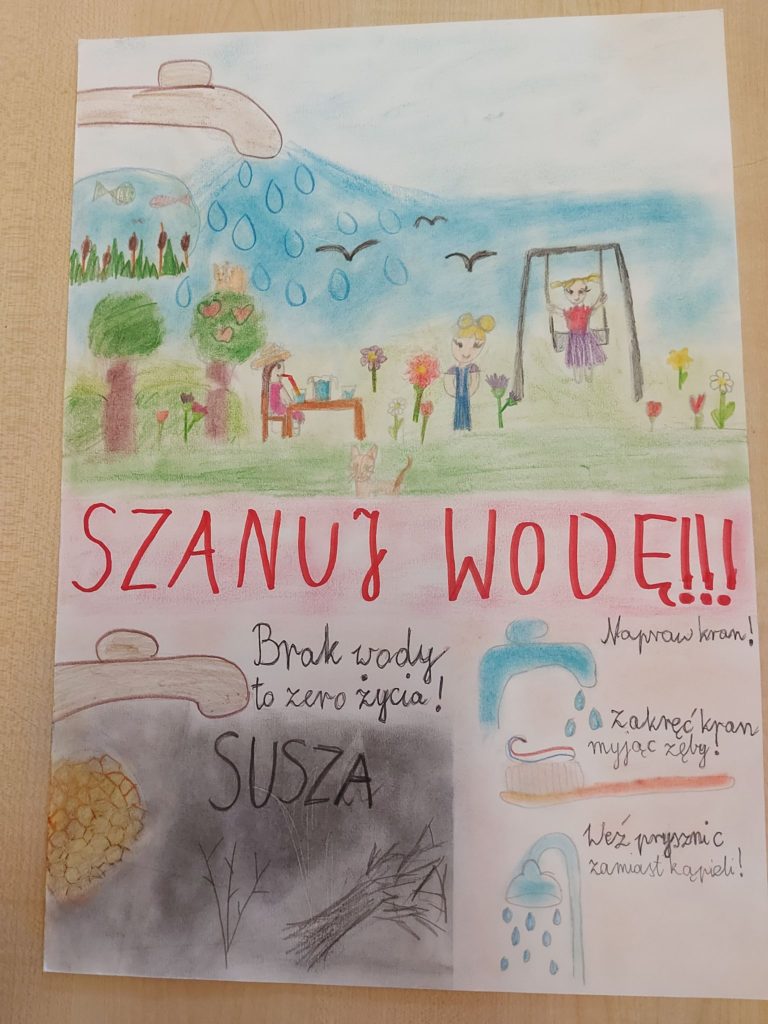 SZANUJ WODĘ!!!
Brak wody
to zero życia!
SUSZA
Napraw kran!
Zakręć kran
myjąc zęby!
Weź prysznic
zamiast kąpieli!